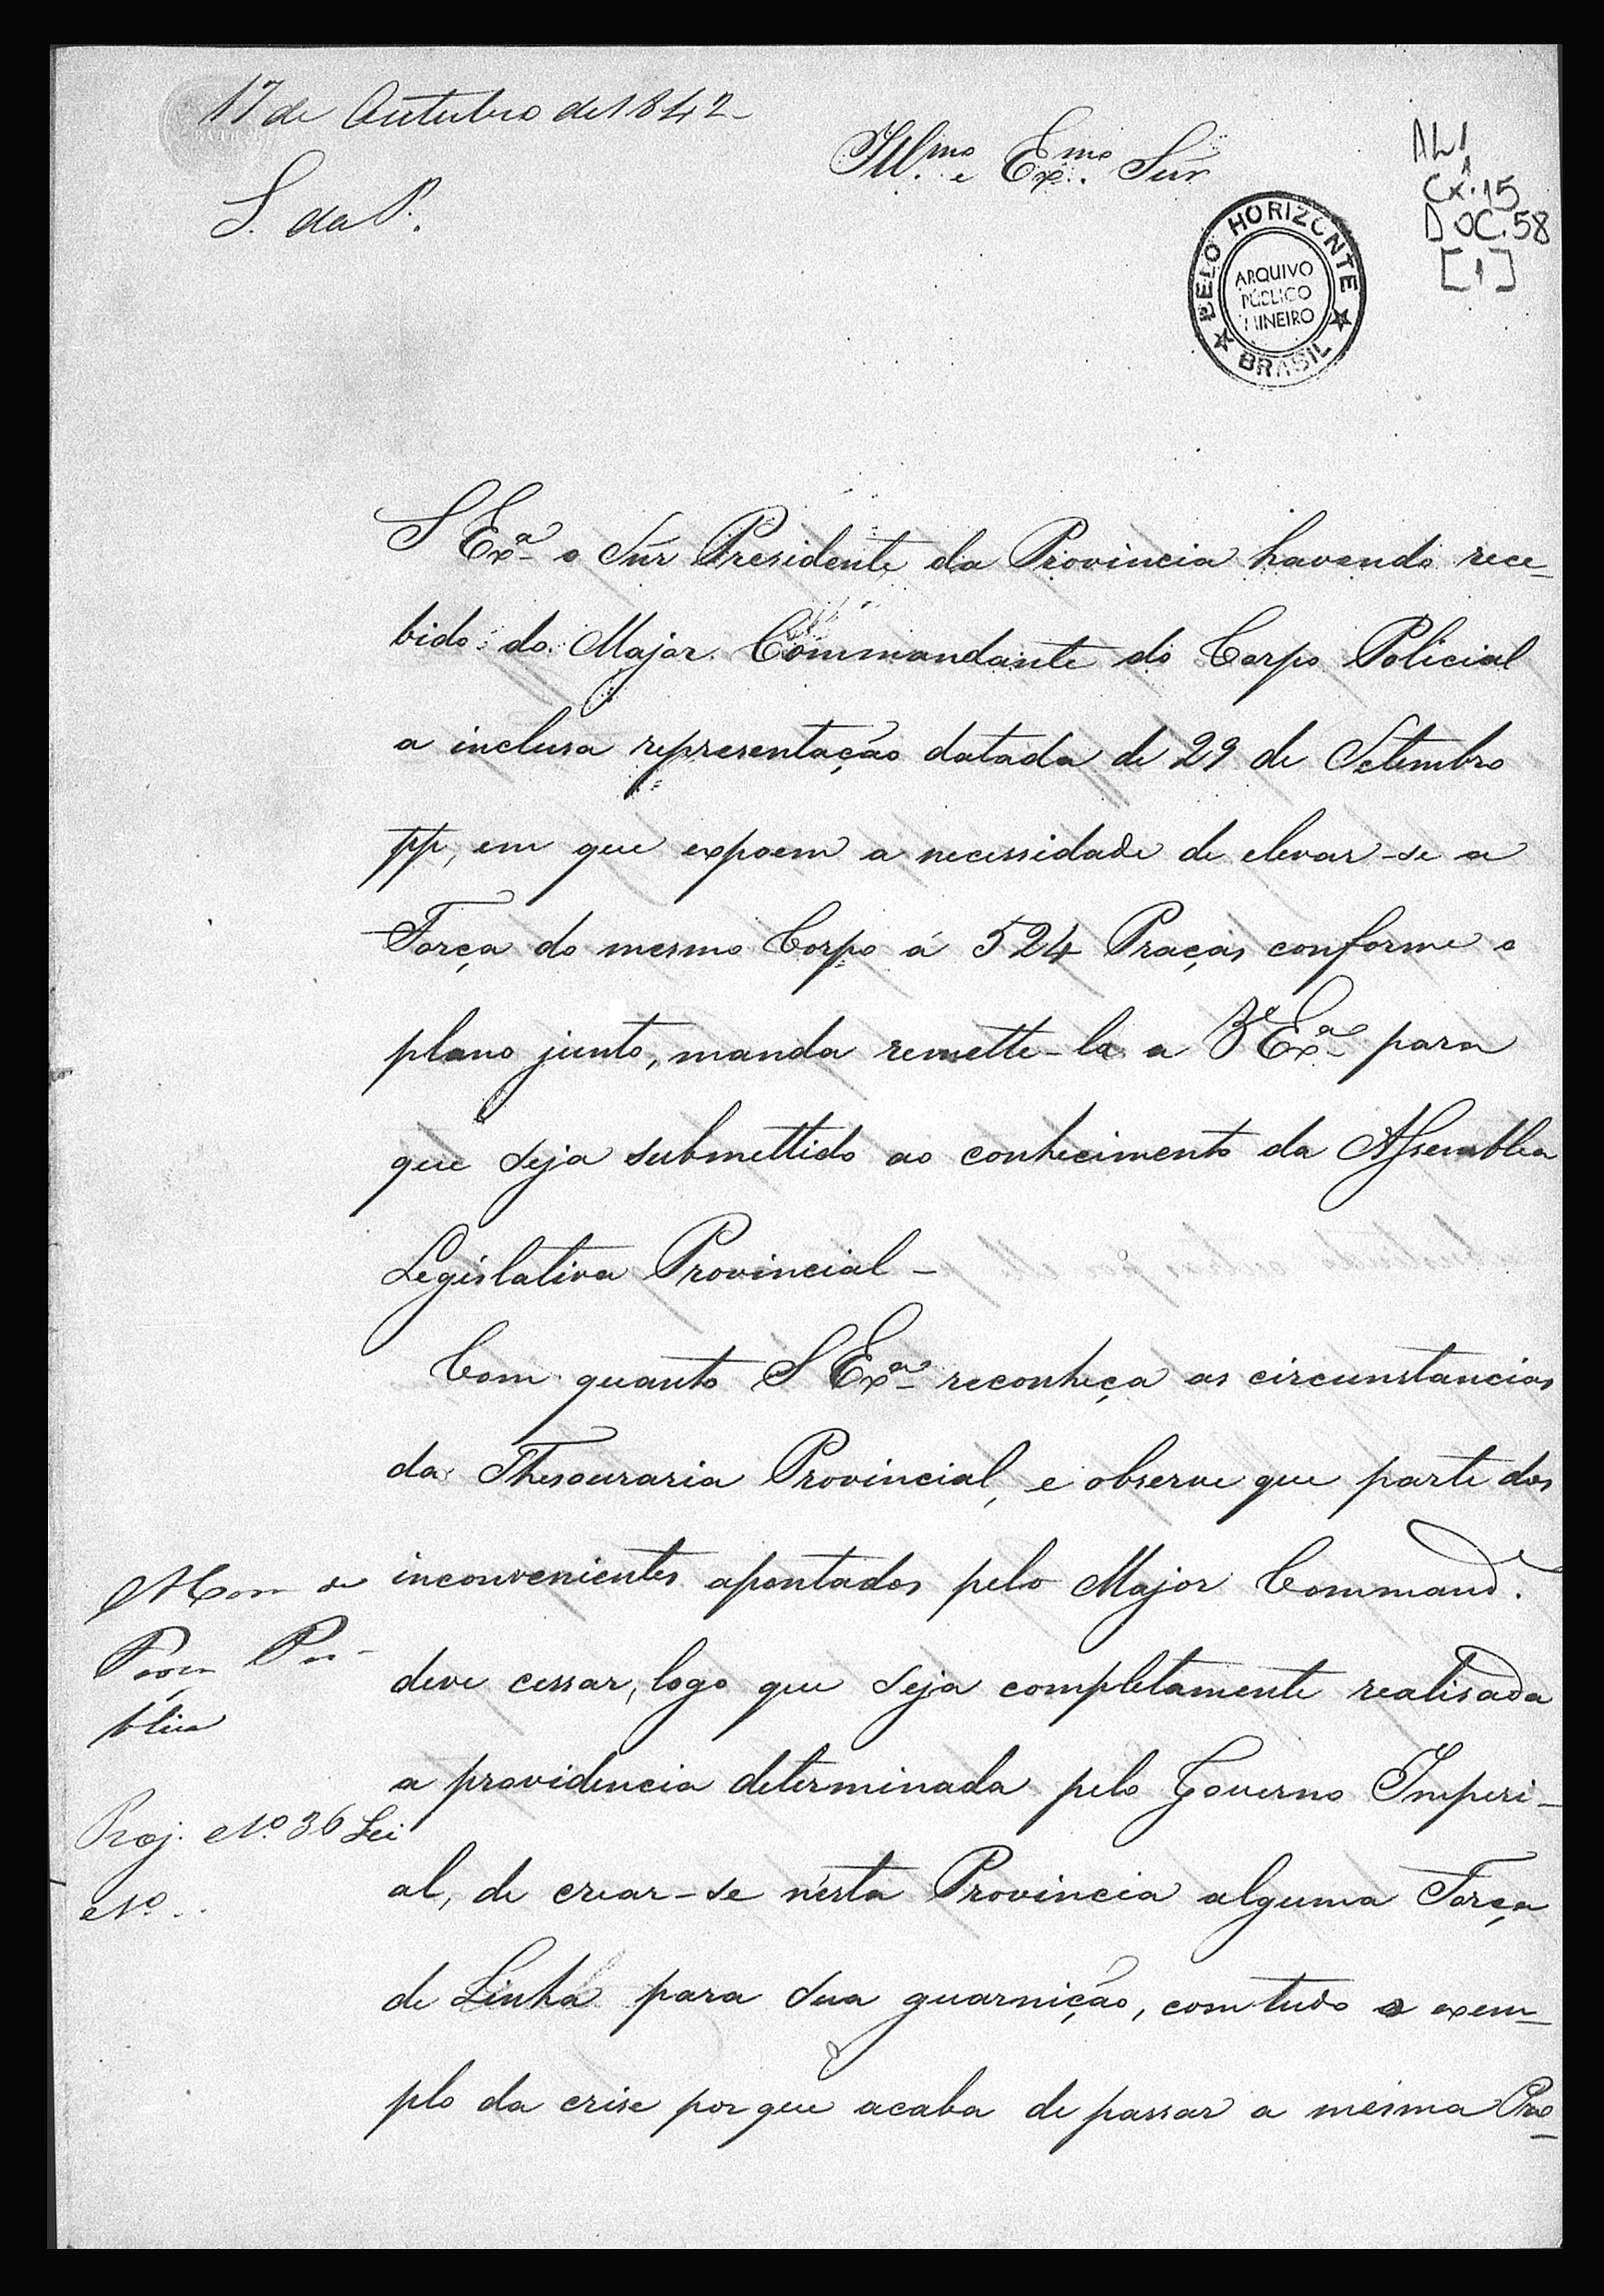 17 de Outubro de 1842
S. da P.
Ill.mo e Ex.mo Snr
AL1
1
CX.15
DOC.58
[1]
BELO HORIZONTE
ARQUIVO
PÚBLICO
MINEIRO
BRASIL
S Exª o Snr Presidente da Provincia havendo rece-
bido do Major Commandante do Corpo Policial
a inclusa representação datada de 29 de Setembro
pp, em que expoem a necessidade de elevar-se a
Força do mesmo Corpo á 524 Praças conforme o
plano junto, manda remette-la a Vª Exª para
que seja submettido ao conhecimento da Assemblea
Legislativa Provincial -
Com quanto S Exª reconheça as circunstancias
da Thesouraria Provincial, e observe que parte dos
inconvenientes apontados pelo Major Command.
deve cessar, logo que seja completamente realisada
a providencia determinada pelo Governo Imperi-
al, de crear-se n'esta Provincia alguma Força
de Linha para sua guarnição, com tudo o exem-
plo da crise por que acaba de passar a mesma Pro-
Pu-
blica
Proj. Nº 36 Lei
Nº ..